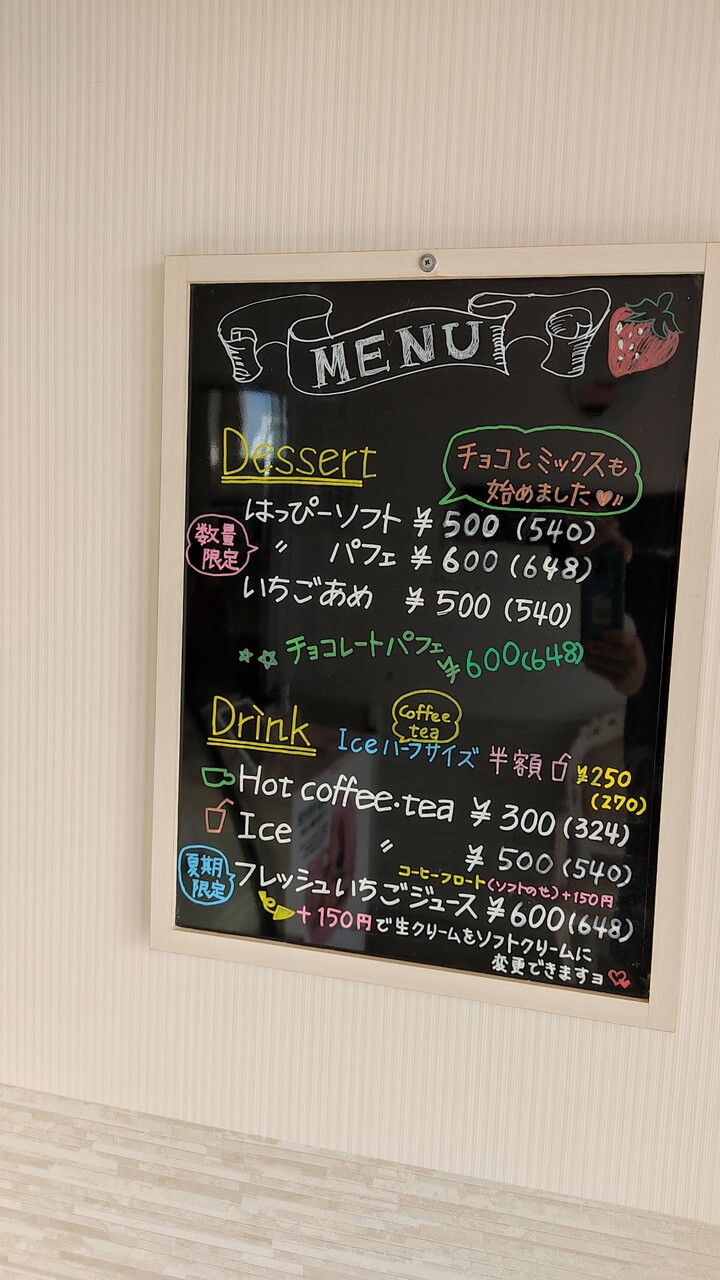 MENU
Dessert
チョコとミックスも
始めました
はっぴーソフト ¥500 (540)
数量
限定
〃 パフェ ¥600 (648)
いちごあめ ¥500 (540)
チョコレートパフェ ¥600(648)
Drink
Coffee
tea
Iceハーフサイズ 半額 ¥250
(270)
Hot coffee・tea ¥300(324)
Ice 〃 ¥500(540)
コーヒーフロート(ソフトのせ)+150円
夏期
限定
フレッシュいちごジュース ¥600(648)
+150円で生クリームをソフトクリームに
変更できますヨ